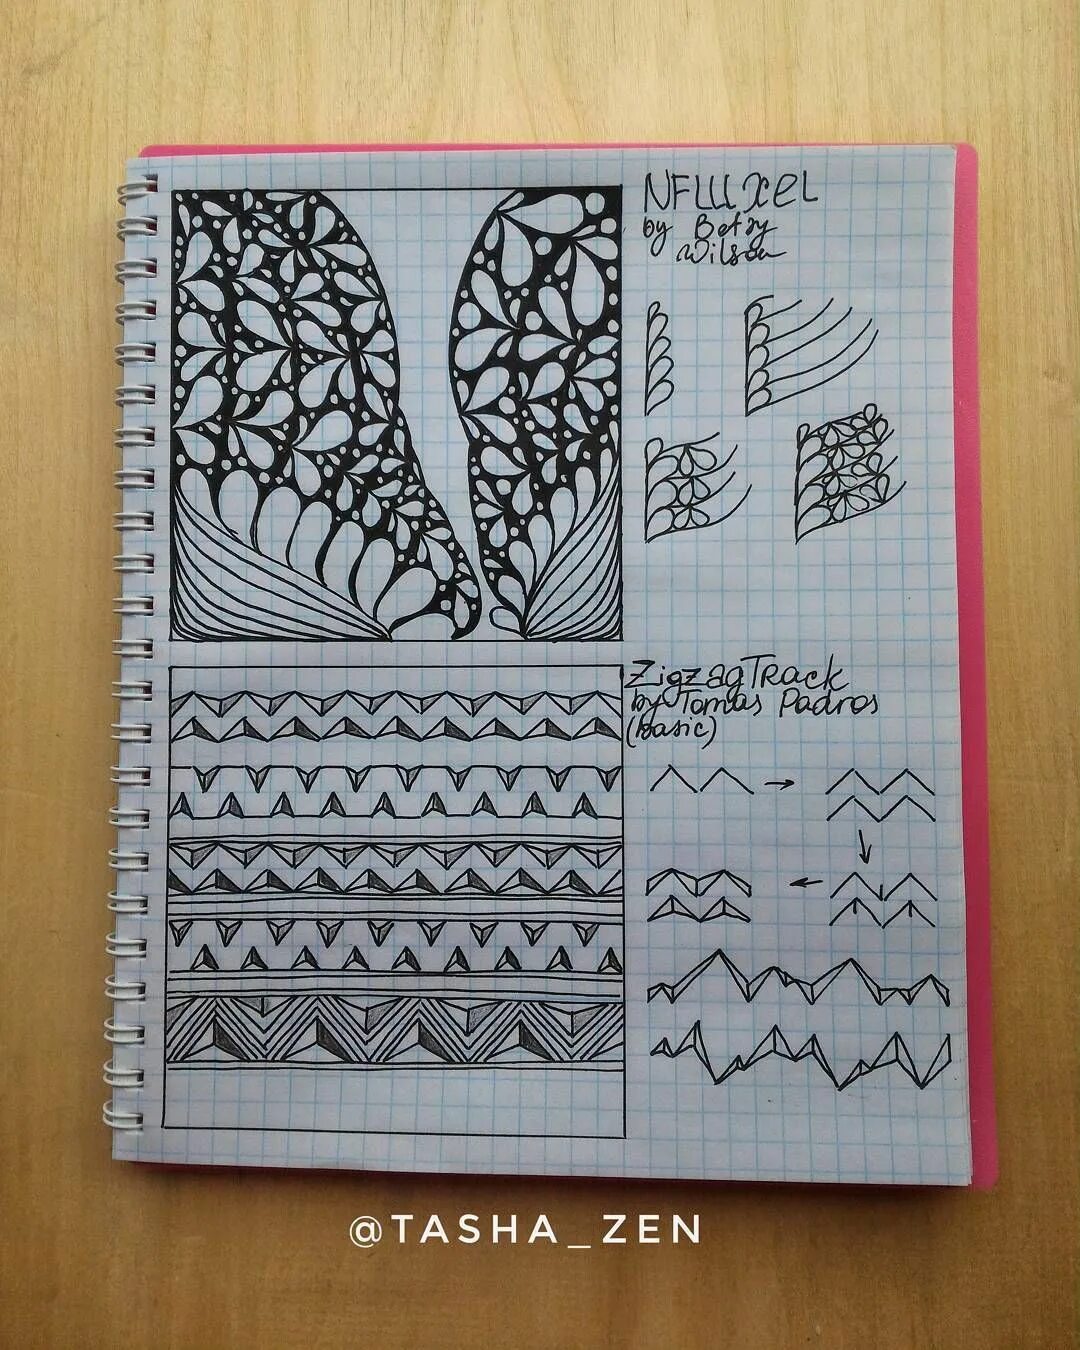 NFLUXEL
by Betsy
Wilson
ZigzagTRack
by Tomas Padros
(basic)
@TASHA_ZEN